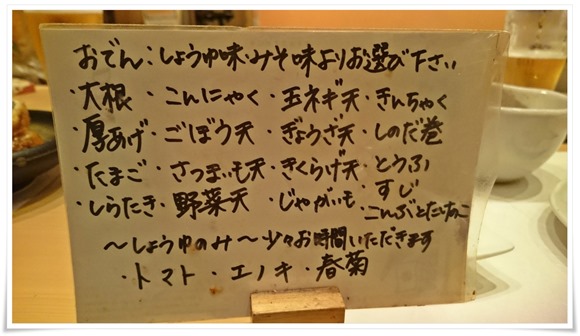 おでん:しょうゆ味・みそ味よりお選び下さい
・大根・こんにゃく・玉ネギ天・きんちゃく
・厚あげ・ごぼう天・ぎょうざ天・しのだ巻
・たまご・さつまいも天・きくらげ天・とうふ
・しらたき・野菜天・じゃがいも・すじ
・こんぶとたけのこ
〜しょうゆのみ〜少々お時間いただきます
・トマト・エノキ・春菊